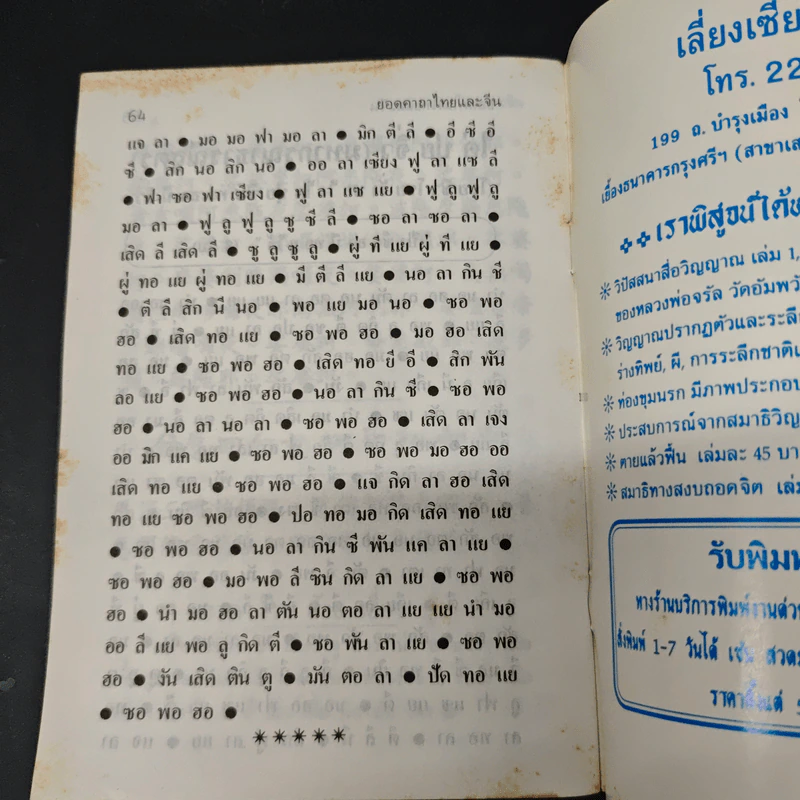 64 ยอดคาถาไทยและจีน
แจ ลา ● มอ มอ ฟา มอ ลา ● มิก ตี ลี ● อี ซี อี
ซี ● สิก นอ สิก นอ ● ออ ลา เซียง ฟู ลา แซ ลี
● ฟา ซอ ฟา เซียง ● ฟู ลา แซ แย ● ฟู ลู ฟู ลู
มอ ลา ● ฟู ลู ฟู ลู ซู ซี ลี ● ซอ ลา ซอ ลา ●
เสิด ลี เสิด ลี ● ซู ลู ซู ลู ● ผู่ ที แย ผู่ ที แย ●
ผู่ ทอ แย ผู่ ทอ แย ● มี ตี ลี แย ● นอ ลา กิน ซี
● ตี ลี สิก นี นอ ● พอ แย มอ นอ ● ซอ พอ
ฮอ ● เสิด ทอ แย ● ซอ พอ ฮอ ● มอ ฮอ เสิด
ทอ แย ● ซอ พอ ฮอ ● เสิด ทอ ยี อี ● สิก พัน
ลอ แย ● ซอ พอ ฮอ ● นอ ลา กิน ซี ● ซอ พอ
ฮอ ● นอ ลา นอ ลา ● ซอ พอ ฮอ ● เสิด ลา เจง
ออ มิก แค แย ● ซอ พอ ฮอ ● ซอ พอ มอ ฮอ ออ
เสิด ทอ แย ● ซอ พอ ฮอ ● แจ กิด ลา ฮอ เสิด
ทอ แย ซอ พอ ฮอ ● ปอ ทอ มอ กิด เสิด ทอ แย
● ซอ พอ ฮอ ● นอ ลา กิน ซี พัน แค ลา แย ●
ซอ พอ ฮอ ● มอ พอ ลี ซิน กิด ลา แย ● ซอ พอ
ฮอ ● นำ มอ ฮอ ลา ตัน นอ ตอ ลา แย แย นำ มอ
ออ ลี แย พอ ลู กิด ตี ● ชอ พัน ลา แย ● ซอ พอ
ฮอ ● งัน เสิด ติน ตู ● มัน ตอ ลา ● ปัด ทอ แย
● ซอ พอ ฮอ ●
✴✴✴✴✴
เลี่ยงเซีย
โทร. 22
199 ถ. บำรุงเมือง
เยื้องธนาคารกรุงศรีฯ (สาขาเส
เราพิสูจน์ได้
วิปัสสนาสื่อวิญญาณ เล่ม 1,
ของหลวงพ่อจรัล วัดอัมพว
วิญญาณปรากฏตัวและระลึก
ร่างทิพย์, ผี, การระลึกชาติ
ท่องขุมนรก มีภาพประกอบ
ประสบการณ์จากสมาธิวิญ
ตายแล้วฟื้น เล่มละ 45 บา
สมาธิทางสงบถอดจิต เล่ม
รับพิมพ
ทางร้านบริการพิมพ์งานด่ว
สั่งพิมพ์ 1-7 วันได้ เช่น สวดม
ราคาตั้งแต่